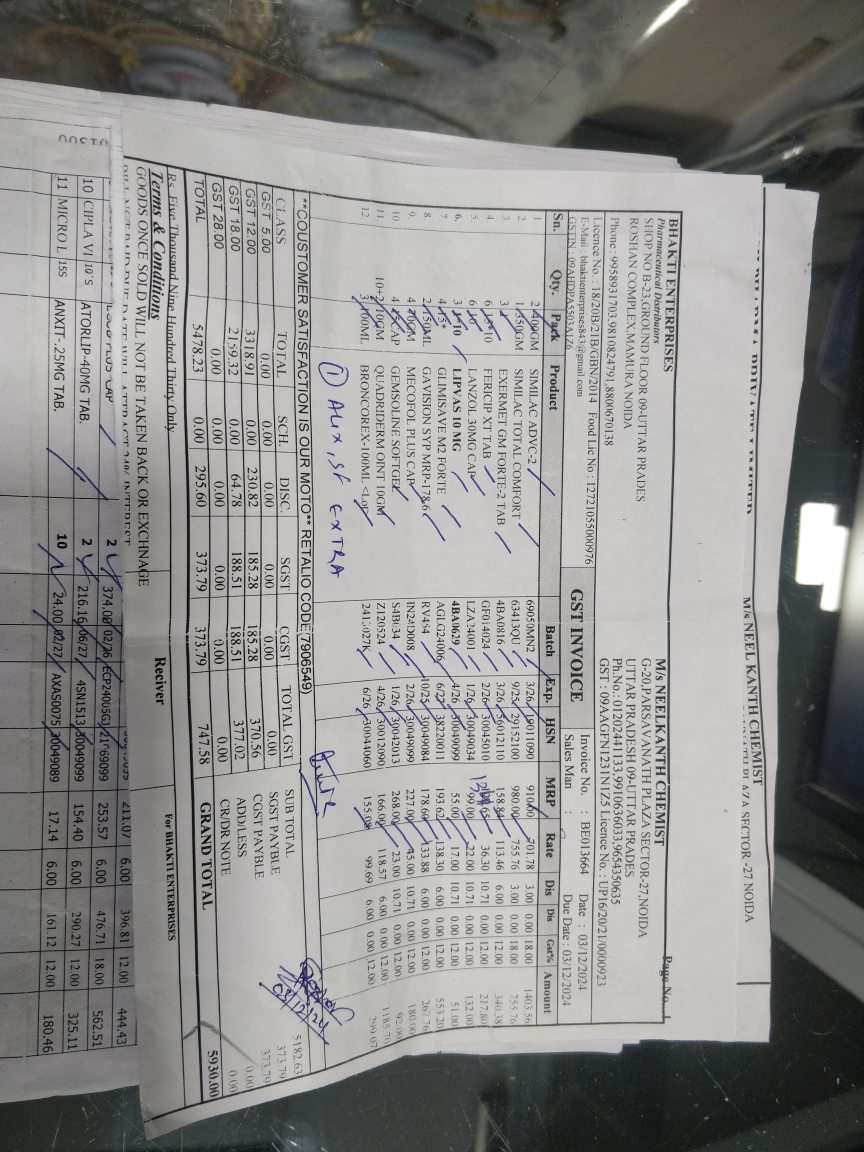 M/s NEEL KANTH CHEMIST
SECTOR -27 NOIDA
Page No.
BHAKTI ENTERPRISES
Pharmaceutical Distributors
SHOP NO B-23,GROUND FLOOR 09-UTTAR PRADES
ROSHAN COMPLEX,MAMURA NOIDA
Phone : 9958931703,9810824791,8800670138
Licence No. : 18/20B/21B/GBN/2014 Food Lic No : 12721055000976
E-Mail bhaktienterprises843@gmail.com
GSTIN : 09AHDPA5503A1Z6
M/s NEELKANTH CHEMIST
G-20,PARSAVANATH PLAZA SECTOR-27,NOIDA
UTTAR PRADESH 09-UTTAR PRADES
Ph.No.: 01202441133,9910636033,9654350635
GST : 09AAGFN1231N1Z5 Licence No.: UP16/20/21/0000923
GST INVOICE
Invoice No. : BE013664 Date : 03/12/2024
Sales Man : Due Date : 03/12/2024
Sn. Qty. Pack Product Batch Exp. HSN MRP Rate Dis Dis Gst% Amount
1. 2 400GM SIMILAC ADVC-2 69050MN2 3/26 19011090 910.00 701.78 3.00 0.00 18.00 1403.56
2 1 350GM SIMILAC TOTAL COMFORT 63413QU 9/25 29152100 980.00 755.76 3.00 0.00 18.00 755.76
3. EXERMET GM FORTE-2 TAB 4BA0816 3/26 56012110 158.84 113.46 6.00 0.00 12.00 340.38
4 6 FERICIP XT TAB GF014024 2/26 30045010 36.30 10.71 0.00 12.00 217.80
5. 6 LANZOL 30MG CAP LZA24001 1/26 30049034 99.00 22.00 10.71 0.00 12.00 132.00
6. 3 LIPVAS 10 MG 4BA0629 4/26 30049099 55.00 17.00 10.71 0.00 12.00 51.00
7. 4 GLIMISAVE M2 FORTE AGLG24006 6/27 38220011 193.62 138.30 6.00 0.00 12.00 553.20
8. 2 150ML GAVISION SYP MRP-178.6 RV454 10/25 30049084 178.60 133.88 6.00 0.00 12.00 267.76
9. 4 MECOFOL PLUS CAP 2/26 30049099 227.00 45.00 10.71 0.00 12.00 180.00
10 4 GEMSOLINE SOFTGEL 1/26 30042013 268.00 23.00 10.71 0.00 12.00 92.00
11 10+2 10GM QUADRIDERM OINT 10GM Z120524 4/26 30012090 166.00 118.57 6.00 0.00 12.00 1185.70
12. 3 100ML BRONCOREX-100ML 6/26 30044060 155.08 99.69 6.00 0.00 12.00 299.07
① Alex, SF EXTRA
**COUSTOMER SATISFACTION IS OUR MOTO** RETALIO CODE(7906549)
CLASS TOTAL SCH. DISC. SGST CGST TOTAL GST
GST 5.00 0.00 0.00 0.00 0.00 0.00 0.00
GST 12.00 3318.91 0.00 230.82 185.28 185.28 370.56
GST 18.00 2159.32 0.00 64.78 188.51 188.51 377.02
GST 28.00 0.00 0.00 0.00 0.00 0.00 0.00
TOTAL 5478.23 0.00 295.60 373.79 373.79 747.58
SUB TOTAL 5182.63
SGST PAYBLE 373.79
CGST PAYBLE 373.79
ADD/LESS 0.00
CR/DR NOTE 0.00
GRAND TOTAL 5930.00
03/12/24
Rs. Five Thousand Nine Hundred Thirty Only
Terms & Conditions
GOODS ONCE SOLD WILL NOT BE TAKEN BACK OR EXCHNAGE
Reciver
For BHAKTI ENTERPRISES
2 374.00 02/26 211.07 6.00 396.81 12.00 444.43
253.57 6.00 476.71 18.00 562.51
10 CIPLA VI 10'S ATORLIP-40MG TAB. 2 216.16 06/27 4SN1513 30049099 154.40 6.00 290.27 12.00 325.11
11 MICRO L 15S ANXIT-.25MG TAB. 10 24.00 02/27 AXAS0075 30049089 17.14 6.00 161.12 12.00 180.46